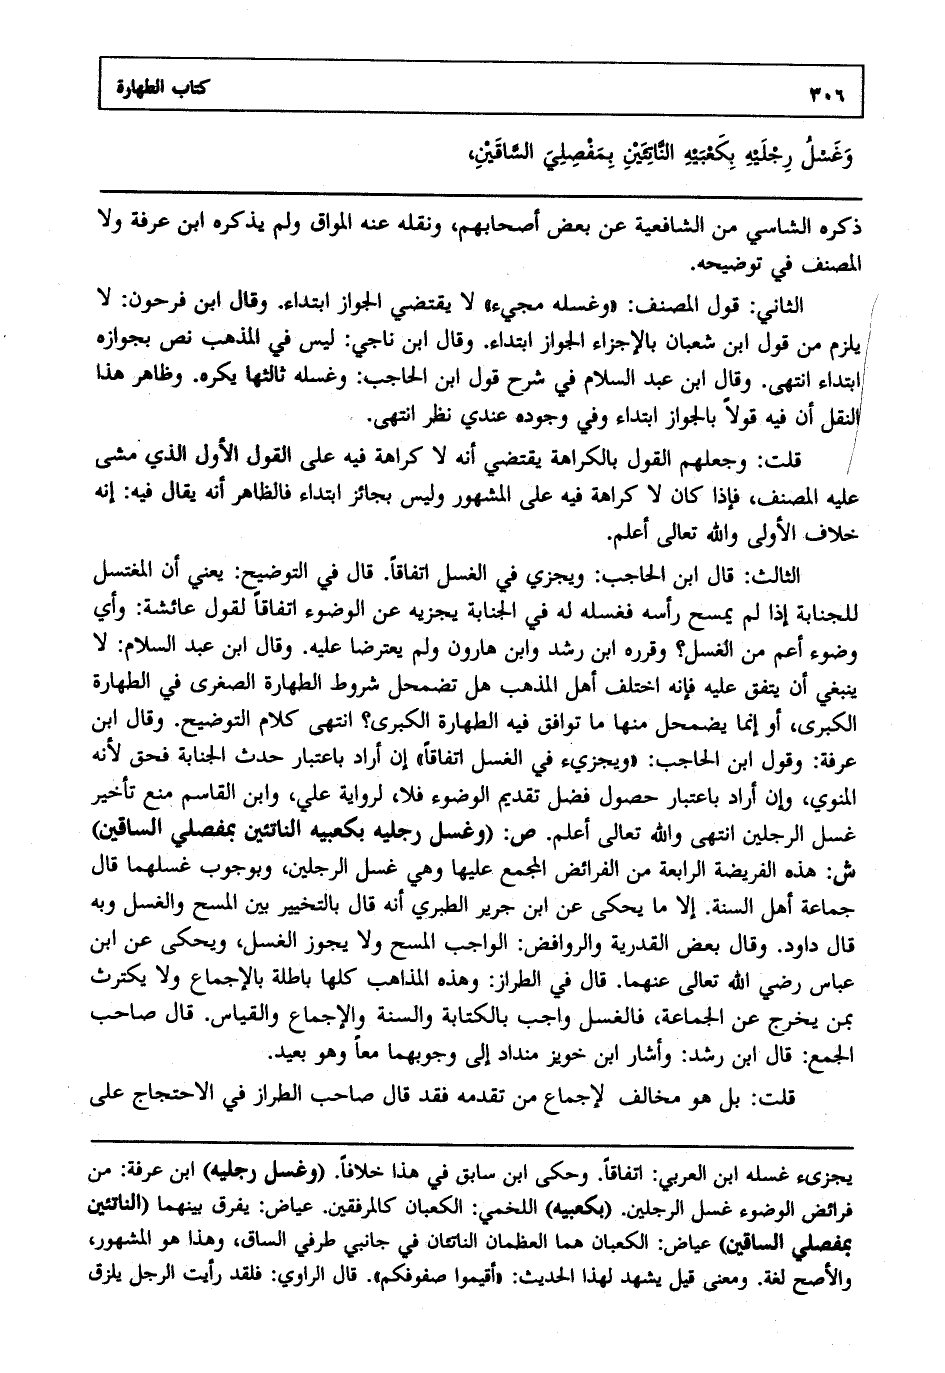 ٣٠٦ كتاب الطهارة
وَغَسْلُ رِجْلَيْهِ بِكَعْبَيْهِ النَّاتِئَيْنِ بِمَفْصِلِيَ السَّاقَيْنِ،
ذكره الشاسي من الشافعية عن بعض أصحابهم، ونقله عنه المواق ولم يذكره ابن عرفة ولا
المصنف في توضيحه.
الثاني: قول المصنف: «وغسله مجيء» لا يقتضي الجواز ابتداء. وقال ابن فرحون: لا
يلزم من قول ابن شعبان بالإجزاء الجواز ابتداء. وقال ابن ناجي: ليس في المذهب نص بجوازه
ابتداء انتهى. وقال ابن عبد السلام في شرح قول ابن الحاجب: وغسله ثالثها يكره. وظاهر هذا
النقل أن فيه قولاً بالجواز ابتداء وفي وجوده عندي نظر انتهى.
قلت: وجعلهم القول بالكراهة يقتضي أنه لا كراهة فيه على القول الأول الذي مشى
عليه المصنف، فإذا كان لا كراهة فيه على المشهور وليس بجائز ابتداء فالظاهر أنه يقال فيه: إنه
خلاف الأولى والله تعالى أعلم.
الثالث: قال ابن الحاجب: ويجزي في الغسل اتفاقاً. قال في التوضيح: يعني أن المغتسل
للجنابة إذا لم يمسح رأسه فغسله له في الجنابة يجزيه عن الوضوء اتفاقاً لقول عائشة: وأي
وضوء أعم من الغسل؟ وقرره ابن رشد وابن هارون ولم يعترضا عليه. وقال ابن عبد السلام: لا
ينبغي أن يتفق عليه فإنه اختلف أهل المذهب هل تضمحل شروط الطهارة الصغرى في الطهارة
الكبرى، أو إنما يضمحل منها ما توافق فيه الطهارة الكبرى؟ انتهى كلام التوضيح. وقال ابن
عرفة: وقول ابن الحاجب: «ويجزيء في الغسل اتفاقاً» إن أراد باعتبار حدث الجنابة فحق لأنه
المنوي، وإن أراد باعتبار حصول فضل تقديم الوضوء فلا، لرواية علي، وابن القاسم منع تأخير
غسل الرجلين انتهى والله تعالى أعلم. ص: (وغسل رجليه بكعبيه الناتئين بمفصلي الساقين)
ش: هذه الفريضة الرابعة من الفرائض المجمع عليها وهي غسل الرجلين، وبوجوب غسلهما قال
جماعة أهل السنة. إلا ما يحكى عن ابن جرير الطبري أنه قال بالتخيير بين المسح والغسل وبه
قال داود. وقال بعض القدرية والروافض: الواجب المسح ولا يجوز الغسل، ويحكى عن ابن
عباس رضي الله تعالى عنهما. قال في الطراز: وهذه المذاهب كلها باطلة بالإجماع ولا يكترث
بمن يخرج عن الجماعة، فالغسل واجب بالكتابة والسنة والإجماع والقياس. قال صاحب
الجمع: قال ابن رشد: وأشار ابن خويز منداد إلى وجوبهما معاً وهو بعيد.
قلت: بل هو مخالف لإجماع من تقدمه فقد قال صاحب الطراز في الاحتجاج على
يجزىء غسله ابن العربي: اتفاقاً. وحكى ابن سابق في هذا خلافاً. (وغسل رجليه) ابن عرفة: من
فرائض الوضوء غسل الرجلين. (بكعبيه) اللخمي: الكعبان كالمرفقين. عياض: يفرق بينهما (الناتئين
بمفصلي الساقين) عياض: الكعبان هما العظمان الناتئان في جانبي طرفي الساق، وهذا هو المشهور،
والأصح لغة. ومعنى قيل يشهد لهذا الحديث: «أقيموا صفوفكم». قال الراوي: فلقد رأيت الرجل يلزق